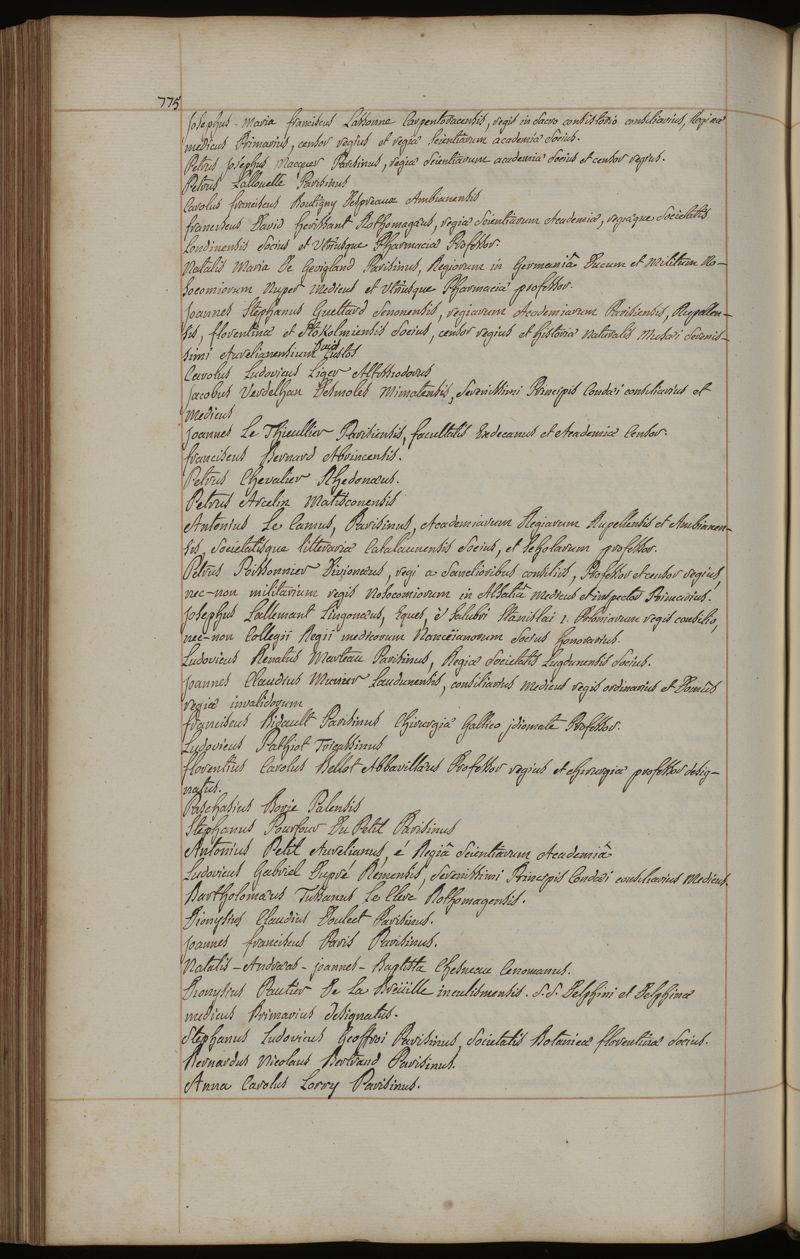 775
Josephus-Maria franciscus Lassonne Carpentoracensis, regis in sacro consistorio consiliarius, Reginæ
medicus Primarius, censor regius et regiæ scientiarum academiæ socius.
Petrus Josephus Macquer Parisinus, regiæ scientiarum academiæ socius et censor regius.
Petrus Lallouette Parisinus
Carolus franciscus Boutigny Despreaux Ambianensis
franciscus David herissant Rothomagæus, regiæ scientiarum Academiæ, regiæque Societatis
Londinensis socius et Utriusque Pharmaciæ Professor.
Natalis Maria De Gevigland Parisinus, Regiorum in Germaniâ Ducum et Militum No-
socomiorum Nuper Medicus et Utriusque Pharmaciæ professor.
Joannes Stephanus Guettard Senonensis, regiarum Academiarum Parisiensis, Rupellen-
sis, florentinæ et Stokolmiensis socius, censor regius et historiæ naturalis Musæi Sereni-
simi Aurelianensium Ducis Custos
Carolus Ludovicus Liger Altissiodorus
Jacobus Verdelhan Desmoles Mimatensis, serenissimi Principis Condæi consiliarius et
Medicus
Joannes Le Thieullier Parisiensis, facultatis Exdecanus et Academiæ Censor.
franciscus Bernard Abrincensis.
Petrus Chevalier Rhedonæus.
Petrus Arcelin Matisconensis
Antonius Le Camus, Parisinus, Academiarum Regiarum Rupellensis et Ambianen-
sis, Societatisque litterariæ Catalaunensis socius, et scholarum professor.
Petrus Poissonnier Divionæus, regi a sanctioribus consiliis, Professor et censor regius,
nec-non militarium regis Nosocomiorum in Alsatiâ medicus et inspector Primarius.
Josephus Lallemant Lingonæus, Eques, è salubri Stanislai 1. Poloniarum regis consilio,
nec-non Collegii Regii medicorum Nanceianorum socius honorarius.
Ludovicus Renatus Marteau Parisinus, Regiæ Societatis Lugdunensis socius.
Joannes Claudius Munier Laudunensis, consiliarius medicus regis ordinarius et Domûs
regiæ invalidorum
franciscus Bidault Parisinus Chirurgiæ Gallico idiomate Professor.
Ludovicus Pathiot Tricassinus
florentius Carolus Bellot Abbavillæus Professor regius et chirurgiæ professor desig-
natus.
Paschasius Borie Palensis
Stephanus Pourfour Du Petit Parisinus
Antonius Petit Aurelianus, é Regiâ scientiarum Academiâ
Ludovicus Gabriel Dupré Remensis, serenissimi Principis Condæi consiliarius Medicus.
Bartholomæus Tussanus Le Clerc Rothomagensis.
Dionysius Claudius Doulcet Parisinus.
Joannes franciscus Paris Parisinus.
Natalis-Andræas-Joannes-Baptista Chesneau Cenomanus.
Dionysius Pautier De La Breüille inculismensis. S.S. Delphini et Delphinæ
medicus Primarius designatus.
Stephanus Ludovicus Geoffroi Parisinus, Societatis Botanicæ florentinæ socius.
Bernardus Nicolaus Bertrand Parisinus.
Anna Carolus Lorry Parisinus.